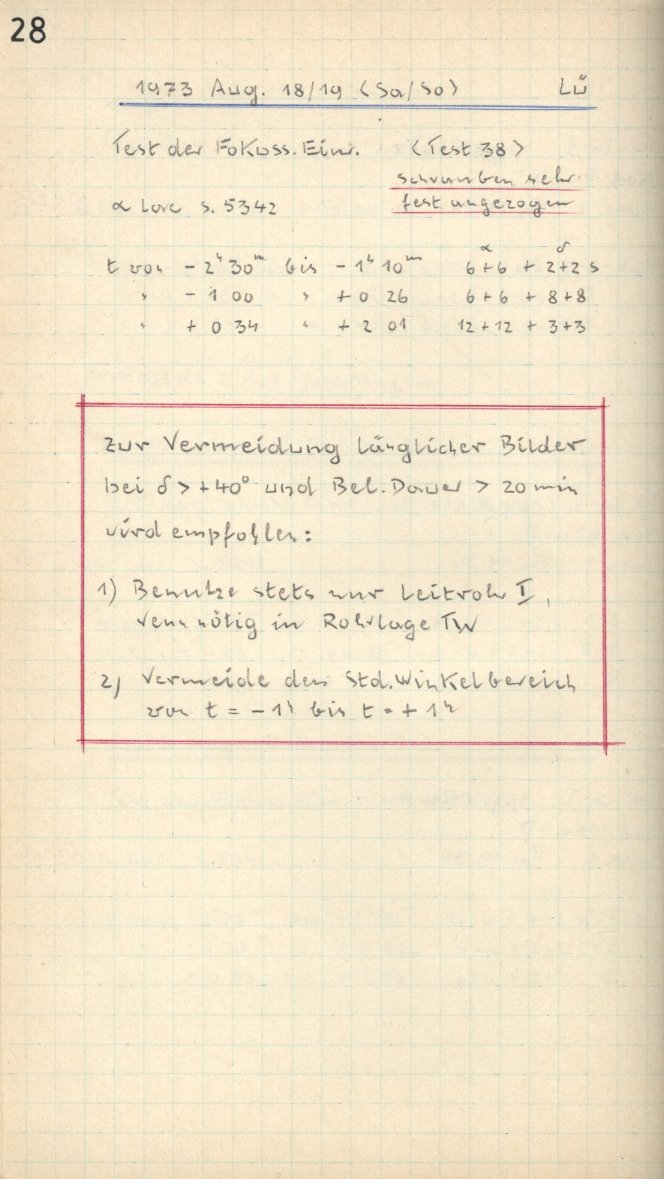 28
1973 Aug. 18/19 (Sa/So) Lü
Test der Fokuss. Einr. (Test 38)
schrauben sehr
fest angezogen
α Lac s. 5342
α δ
t von - 2ʰ 30ᵐ bis - 1ʰ 10ᵐ 6+6 + 2+2 s
" - 1 00 " + 0 26 6+6 + 8+8
" + 0 34 " + 2 01 12+12 + 3+3
Zur Vermeidung länglicher Bilder
bei δ > +40° und Bel. Dauer > 20 min
wird empfohlen:
1) Benutze stets nur Leitrohr I,
wenn nötig in Rohrlage TW
2) Vermeide den Std.Winkelbereich
von t = - 1ʰ bis t = + 1ʰ